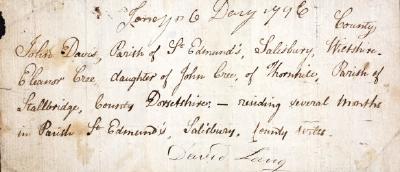 6 Decr 1796
County
John Davis, Parish of St Edmund's, Salisbury, Wiltshire.
Eleanor Cree daughter of John Cree, of Thornhill, Parish of
Stallbridge, County Dorsetshire, — residing several months
in Parish St Edmund's, Salisbury, County Wilts.
David Lang